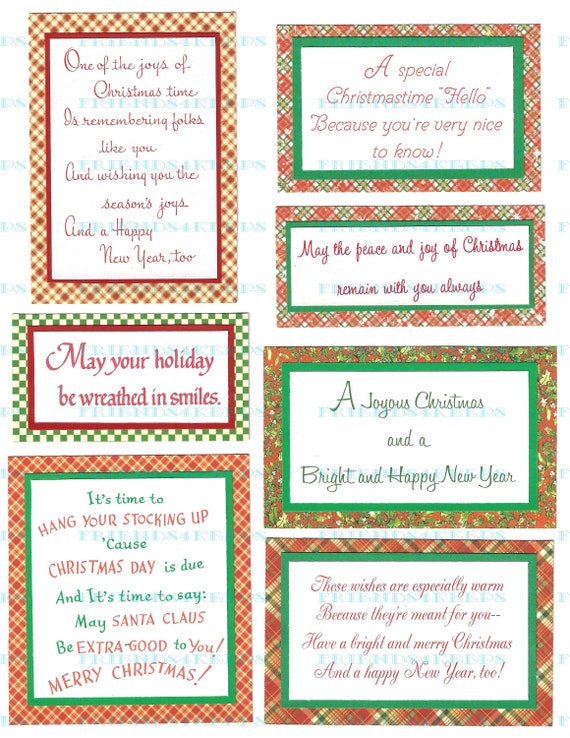 One of the joys of
Christmas time
Is remembering folks
like you
And wishing you the
season's joys
And a Happy
New Year, too
A special
Christmastime "Hello"
Because you're very nice
to know!
May the peace and joy of Christmas
remain with you always
May your holiday
be wreathed in smiles.
A Joyous Christmas
and a
Bright and Happy New Year
It's time to
HANG YOUR STOCKING UP
'Cause
CHRISTMAS DAY is due
And It's time to say:
May SANTA CLAUS
Be EXTRA-GOOD to You!
MERRY CHRISTMAS!
These wishes are especially warm
Because they're meant for you--
Have a bright and merry Christmas
And a happy New Year, too!
FRIENDS4KEEPS